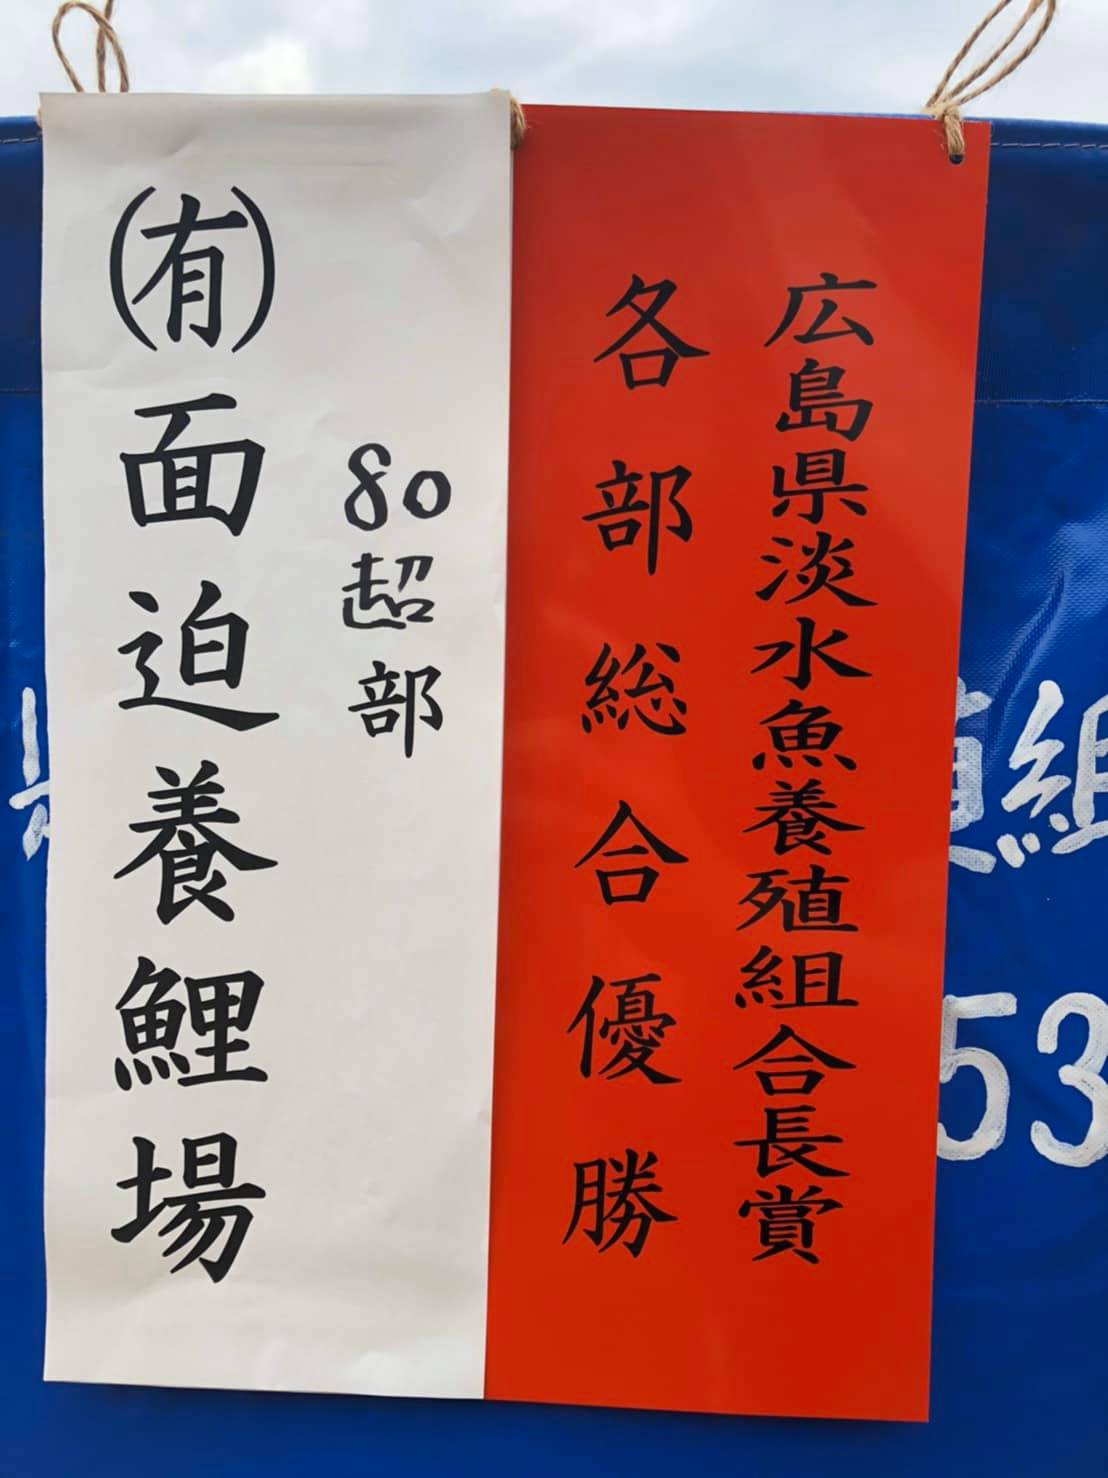 広島県淡水魚養殖組合長賞
各部総合優勝
80超部
㈲面迫養鯉場
殖組
53